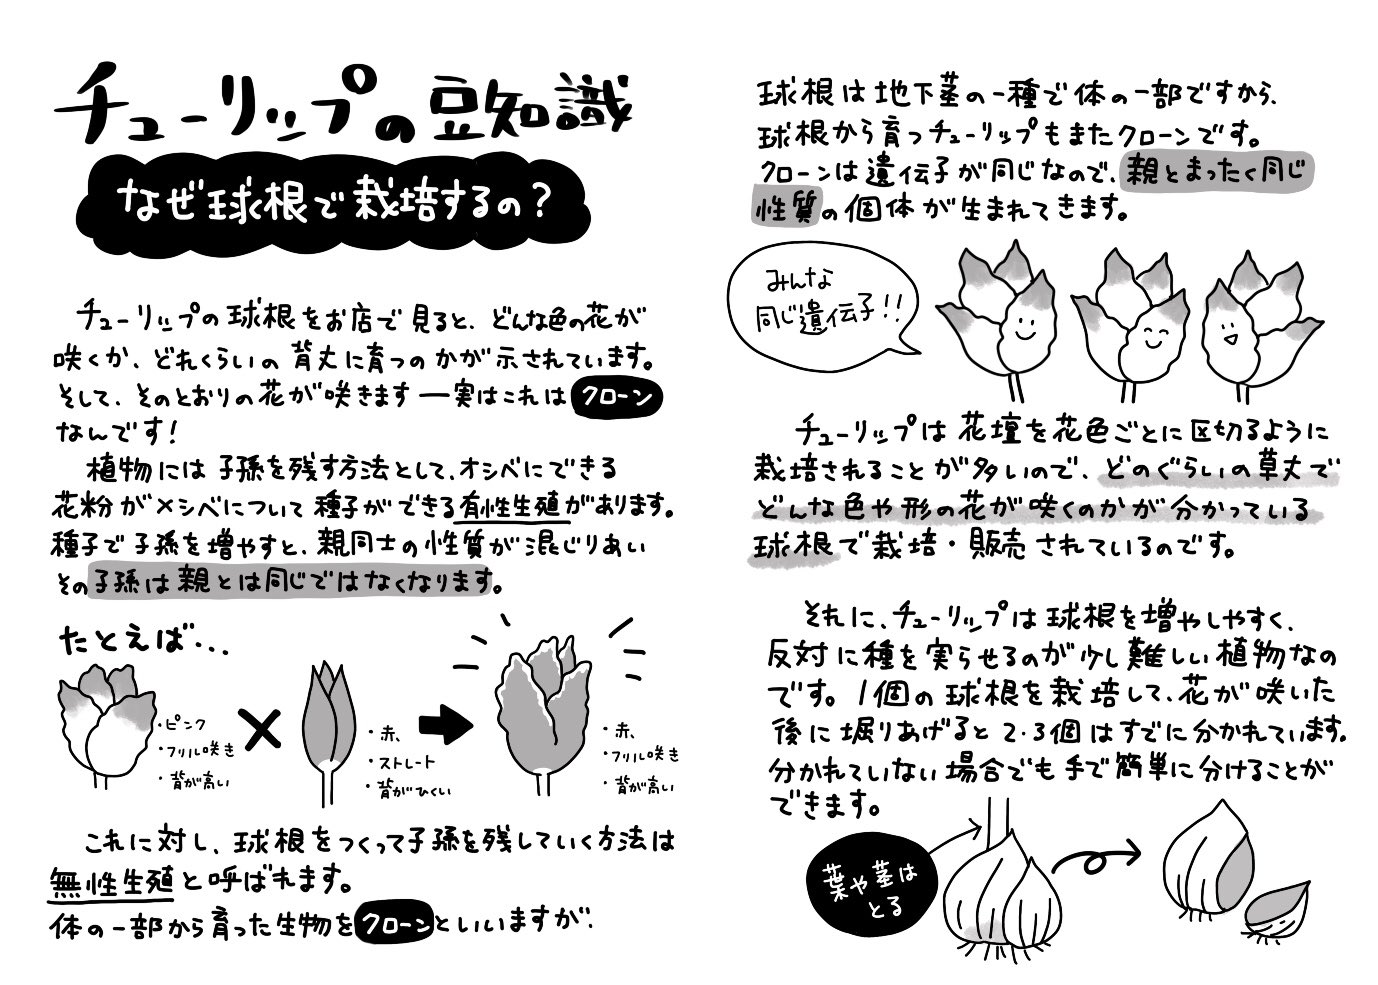 チューリップの豆知識
なぜ球根で栽培するの？
チューリップの球根をお店で見ると、どんな色の花が
咲くか、どれくらいの背丈に育つのかが示されています。
そして、そのとおりの花が咲きます—実はこれはクローン
なんです！
植物には子孫を残す方法として、オシベにできる
花粉がメシベについて種子ができる有性生殖があります。
種子で子孫を増やすと、親同士の性質が混じりあい
その子孫は親とは同じではなくなります。
たとえば・・・
・ピンク
・フリル咲き
・背が高い
・赤、
・ストレート
・背がひくい
・赤、
・フリル咲き
・背が高い
これに対し、球根をつくって子孫を残していく方法は
無性生殖と呼ばれます。
体の一部から育った生物をクローンといいますが、
球根は地下茎の一種で体の一部ですから、
球根から育つチューリップもまたクローンです。
クローンは遺伝子が同じなので、親とまったく同じ
性質の個体が生まれてきます。
みんな
同じ遺伝子！！
チューリップは花壇を花色ごとに区切るように
栽培されることが多いので、どのぐらいの草丈で
どんな色や形の花が咲くのかが分かっている
球根で栽培・販売されているのです。
それに、チューリップは球根を増やしやすく、
反対に種を実らせるのが少し難しい植物なの
です。1個の球根を栽培して、花が咲いた
後に堀りあげると2・3個はすでに分かれています。
分かれていない場合でも手で簡単に分けることが
できます。
葉や茎は
とる